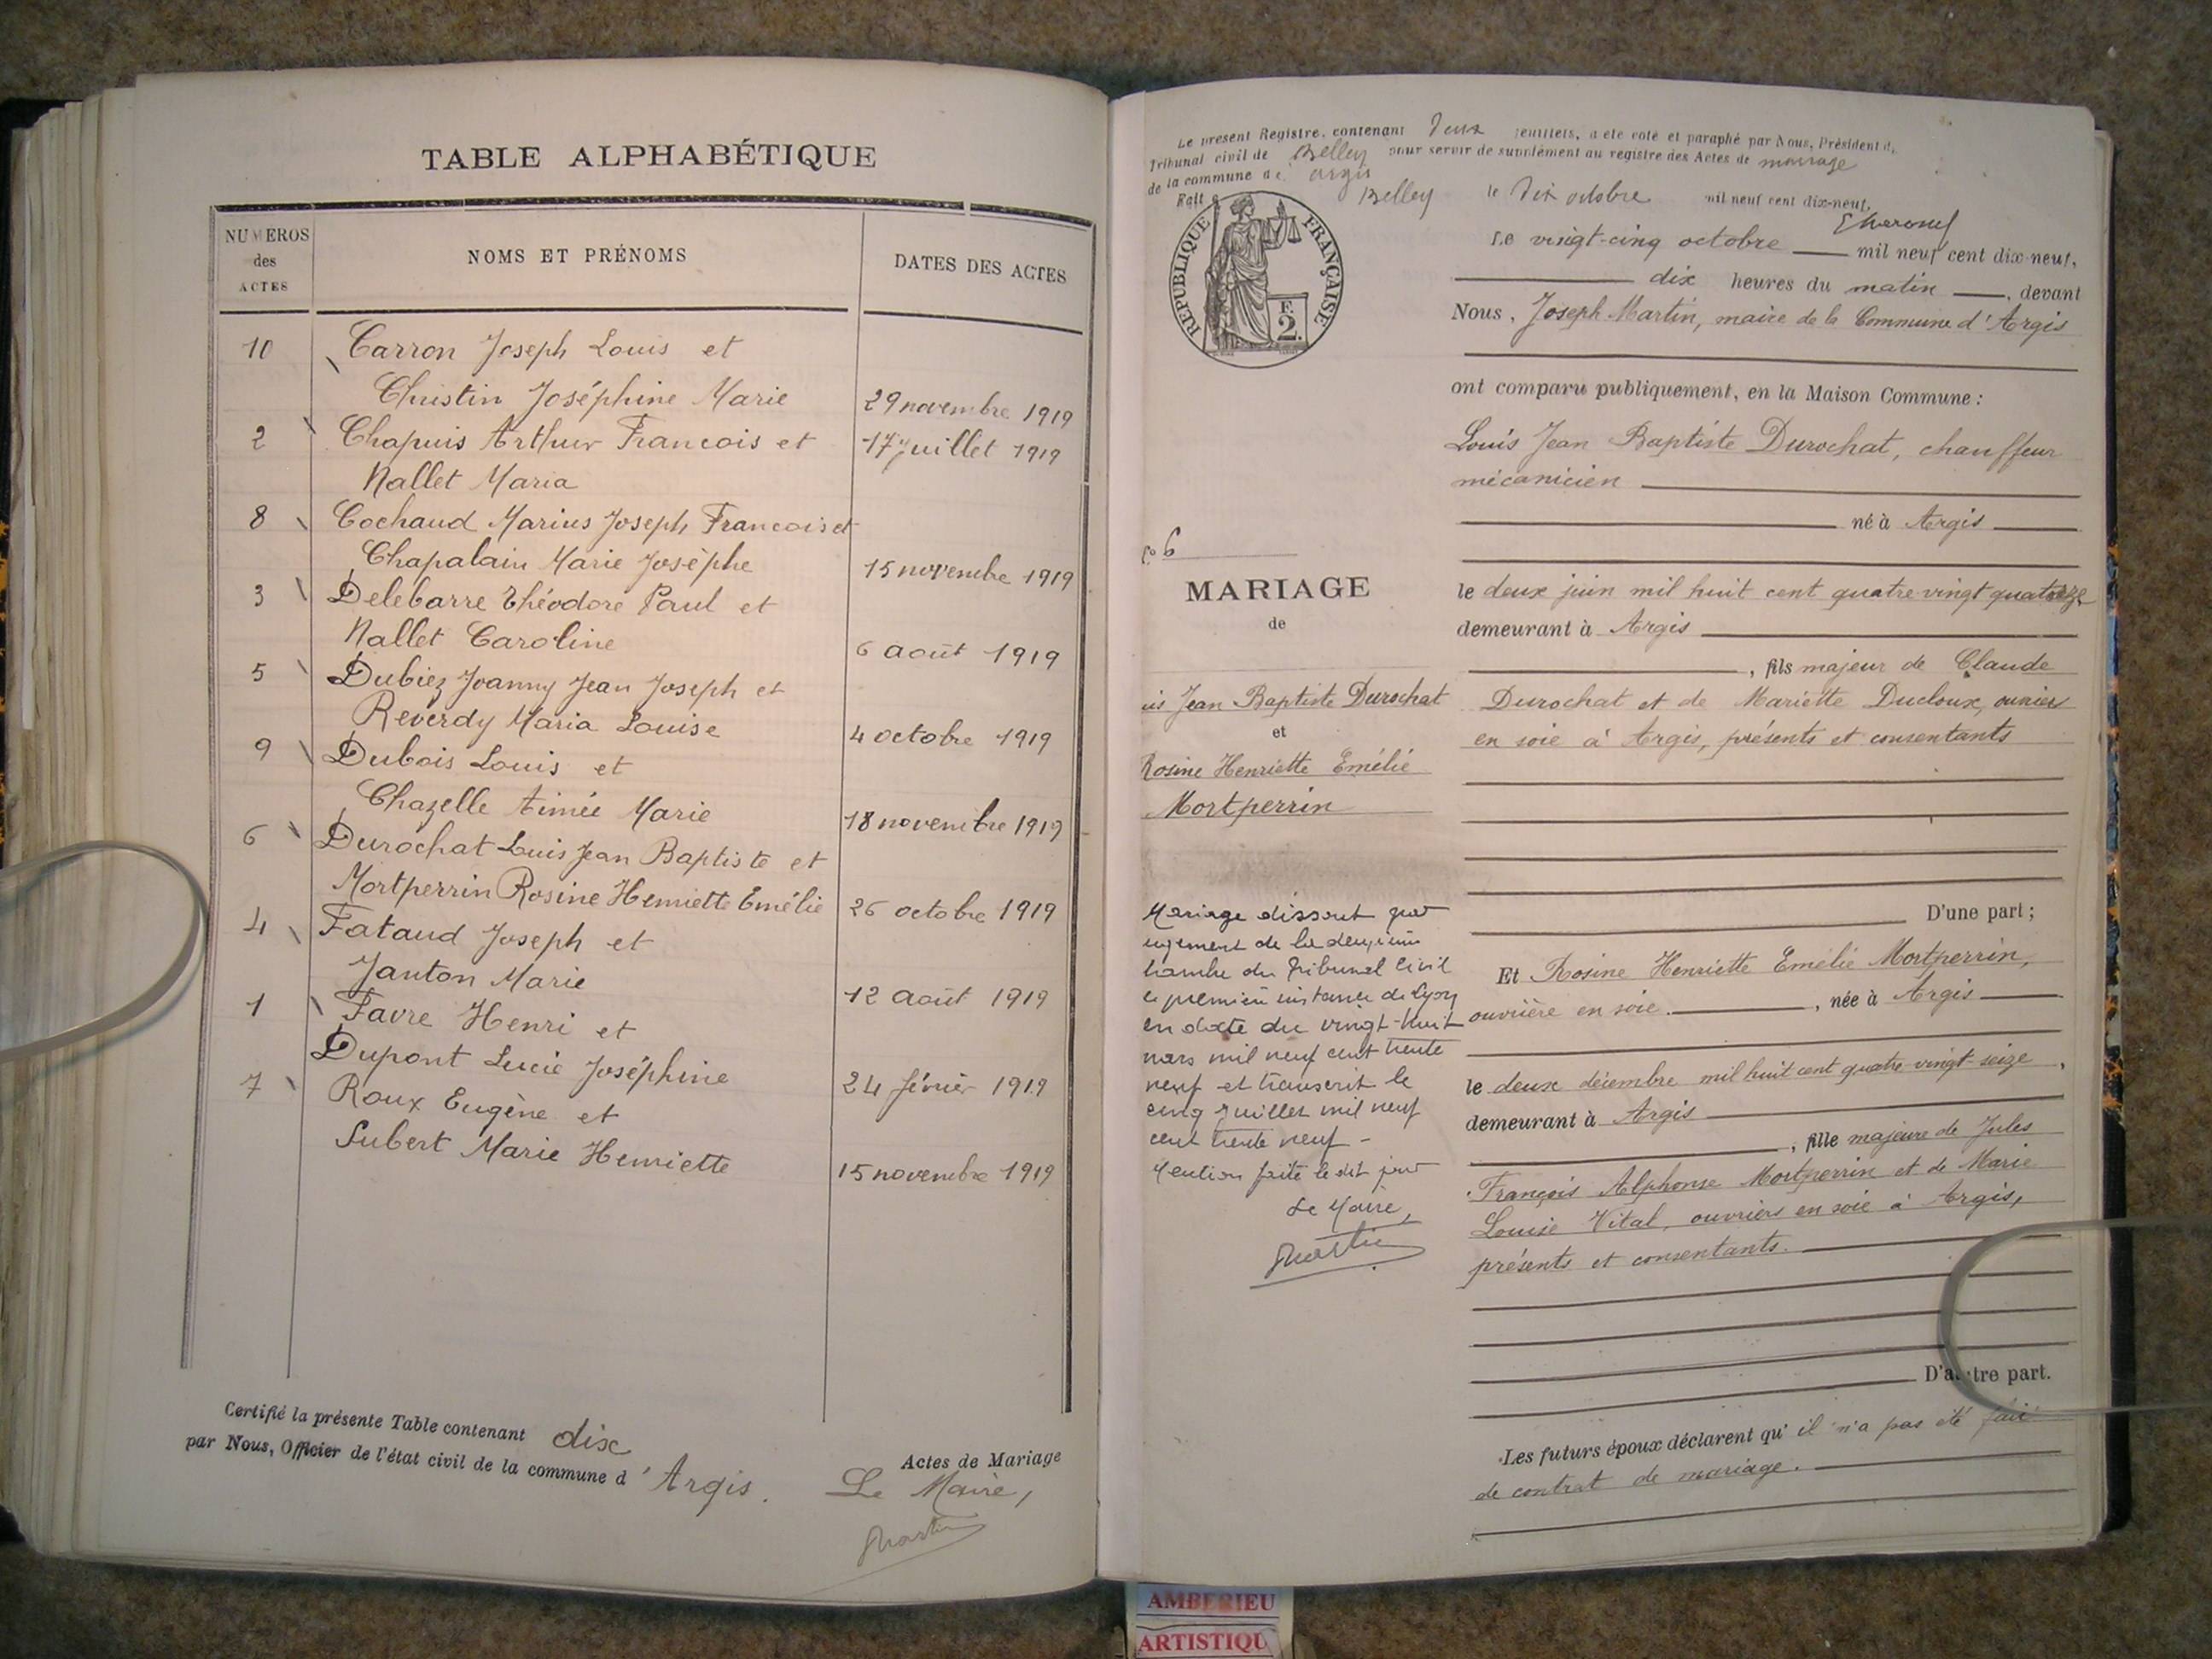 TABLE ALPHABÉTIQUE
NUMEROS des ACTES
NOMS ET PRÉNOMS
DATES DES ACTES
10 Carron Joseph Louis et
Christin Joséphine Marie 29 novembre 1919
2 Chapuis Arthur Francois et 17 juillet 1919
Nallet Maria
8 Cochaud Marius Joseph Francois et
Chapalain Marie Josèphe 15 novembre 1919
3 Delebarre Théodore Paul et
Nallet Caroline 6 août 1919
5 Dubiez Joanny Jean Joseph et
Reverdy Maria Louise 4 octobre 1919
9 Dubois Louis et
Chazelle Aimée Marie 18 novembre 1919
6 Durochat Louis Jean Baptiste et
Mortperrin Rosine Henriette Emélie 26 octobre 1919
4 Fataud Joseph et
Janton Marie 12 août 1919
1 Favre Henri et
Dupont Lucie Joséphine 24 février 1919
7 Roux Eugène et
Subert Marie Henriette 15 novembre 1919
Certifié la présente Table contenant dix Actes de Mariage
par Nous, Officier de l'état civil de la commune d'Argis.
Le Maire,
Martin
Le présent Registre, contenant deux feuillets, a été coté et paraphé par Nous, Président du
Tribunal civil de Belley pour servir de supplément au registre des Actes de mariage
de la commune de Argis
Fait à Belley le dix octobre mil neuf cent dix-neuf.
RÉPUBLIQUE FRANÇAISE
F. 2.
Le vingt-cinq octobre mil neuf cent dix-neuf,
dix heures du matin, devant
Nous, Joseph Martin, maire de la Commune d'Argis
ont comparu publiquement, en la Maison Commune :
Louis Jean Baptiste Durochat, chauffeur
mécanicien
né à Argis
le deux juin mil huit cent quatre-vingt quatorze
demeurant à Argis
, fils majeur de Claude
Durochat et de Mariette Ducloux, ouvriers
en soie à Argis, présents et consentants
D'une part ;
Et Rosine Henriette Emélie Mortperrin,
ouvrière en soie, née à Argis
le deux décembre mil huit cent quatre vingt-seize,
demeurant à Argis
, fille majeure de Jules
François Alphonse Mortperrin et de Marie
Louise Vital, ouvriers en soie à Argis,
présents et consentants.
D'autre part.
Les futurs époux déclarent qu'il n'a pas été fait
de contrat de mariage.
No 6
MARIAGE
de
is Jean Baptiste Durochat
et
Rosine Henriette Emélie
Mortperrin
Mariage dissout par
ugement de la deuxième
hambre du Tribunal Civil
e première instance de Lyon
en date du vingt-huit
mars mil neuf cent trente
neuf et transcrit le
cinq juillet mil neuf
cent trente neuf -
Mention faite le dit jour
Le Maire,
Martin
AMBERIEU
ARTISTIQU